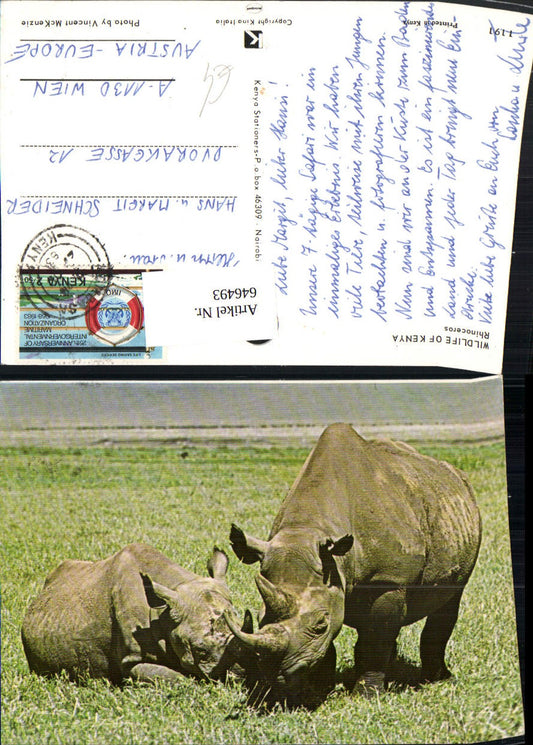 WILDLIFE OF KENYA
Rhinoceros
Liebe Margit, lieber Hansi!
Unsere 7-tägige Safari war ein
einmaliges Erlebnis. Wir haben
viele Tiere, teilweise mit ihren Jungen
beobachten u. fotografieren können.
Nun sind wir an der Küste zum Baden
und Entspannen. Es ist ein faszinierendes
Land und jeder Tag bringt neue Ein-
drücke.
Viele liebe Grüße an Euch von
1191
Printed in Kenya
Kenya Stationers-P o box 46309 Nairobi
Copyright Kina Italia
K
Photo by Vincent McKenzie
Herrn u. Frau
HANS u. MARGIT SCHNEIDER
DVORAKGASSE 12
A-1130 WIEN
AUSTRIA-EUROPE
IMO
LIFE SAVING DEVICES
25th ANNIVERSARY OF
INTERGOVERNMENTAL
MARITIME
ORGANIZATION
1958-1983
KENYA
KENYA
Artikel Nr.
646493